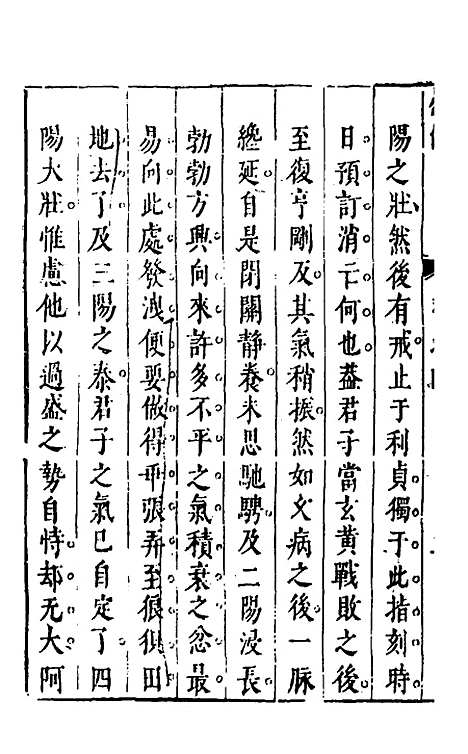 陽之壯然後有戒止于利貞獨于此指刻時
日預訂消亡何也葢君子當玄黃戰敗之後
至復亨剛及其氣稍振然如久病之後一脉
纔延自是閉關靜養未思馳騁及二陽浸長
勃勃方興向來許多不平之氣積衰之忿最
易向此處發洩便要做得乖張弄至狠狽田
地去了及三陽之泰君子之氣已自定了四
陽大壯惟慮他以過盛之勢自恃却无大阿